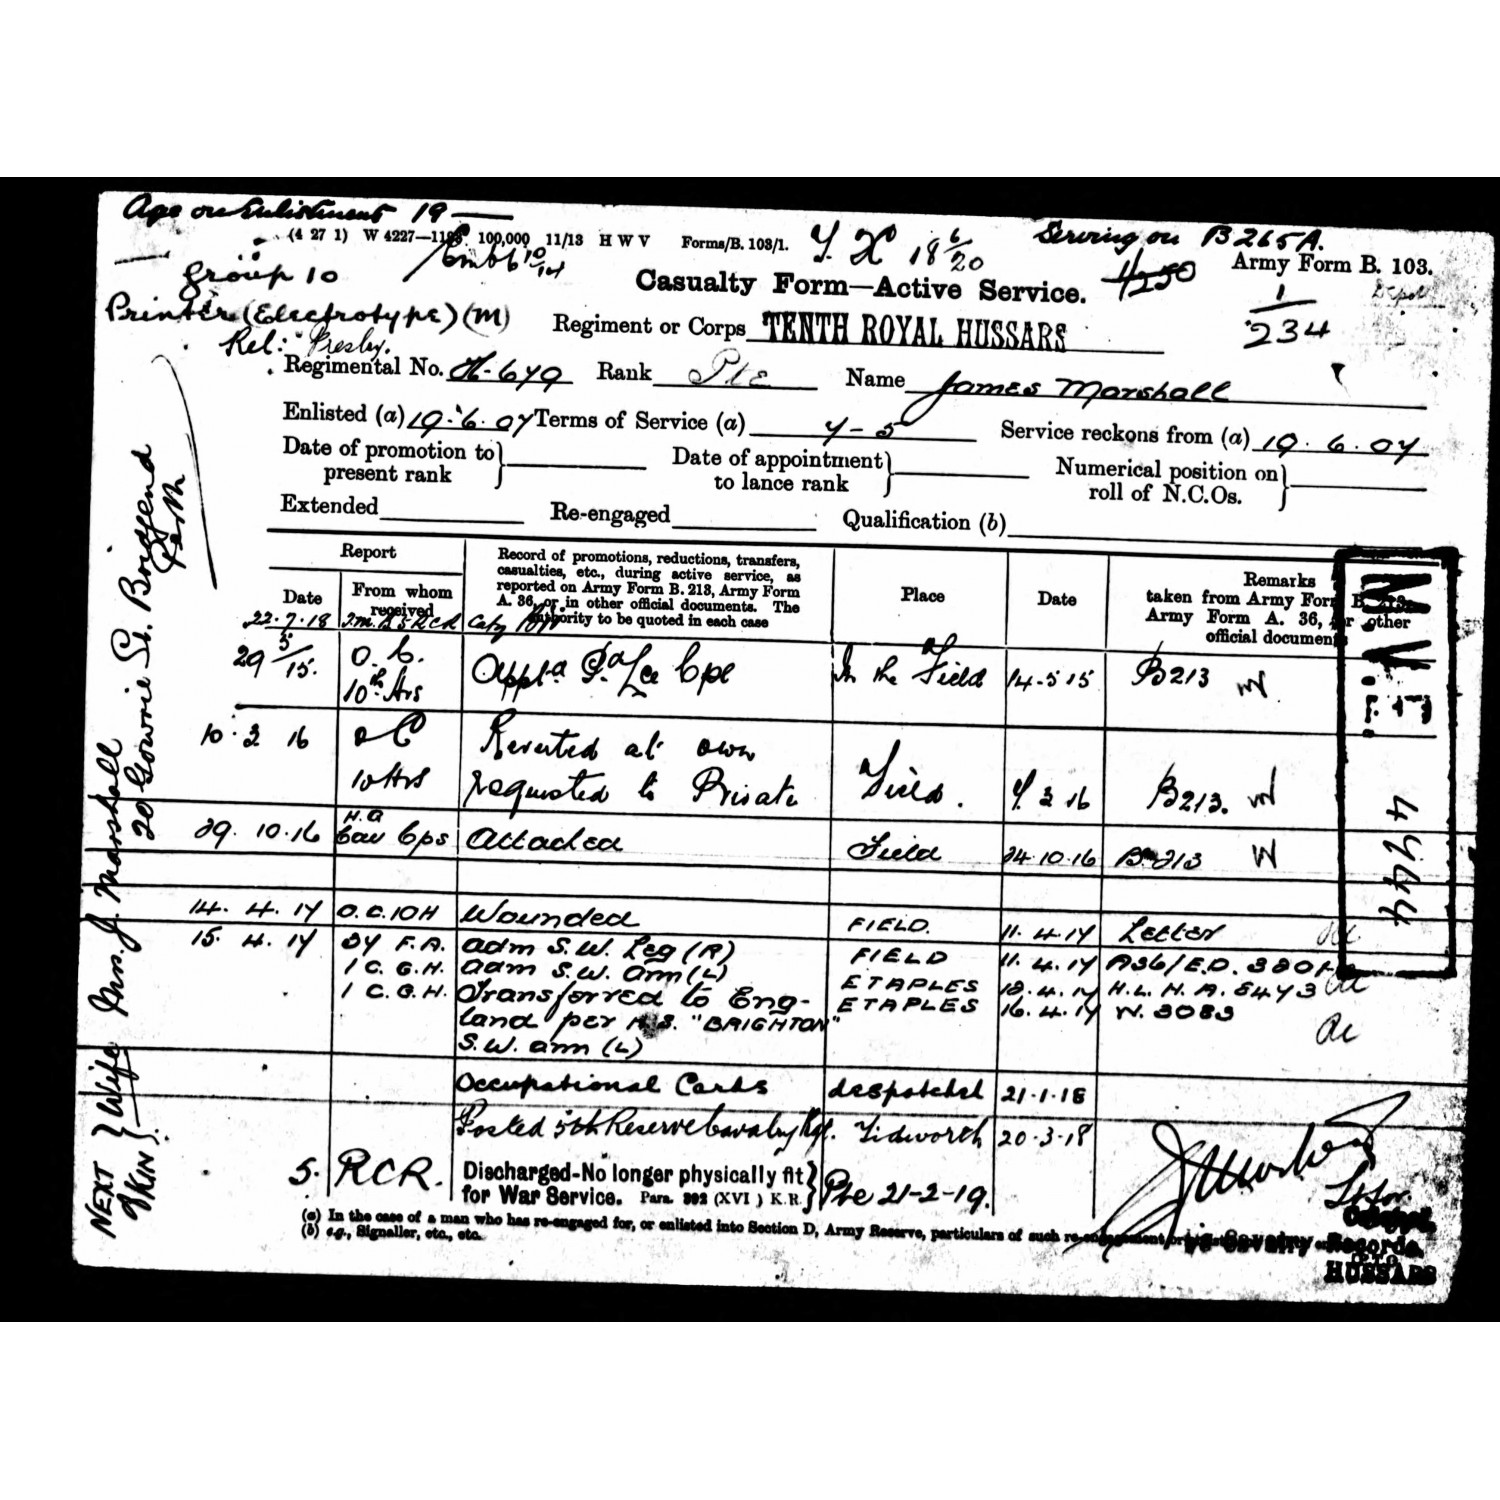 Age on Enlistment 19 —
(4 27 1) W 4227—1188 100,000 11/13 H W V Forms/B. 103/1.
Serving on B 265A.
Army Form B. 103.
Group 10
Emb 6 10/14
Y. X 18 6/20
Casualty Form—Active Service.
1/250
1/234
Printer (Electrotype) (M)
Rel: Presby.
Regiment or Corps TENTH ROYAL HUSSARS
Regimental No. H-679 Rank Pte Name James Marshall
Enlisted (a) 19.6.07 Terms of Service (a) 7-5 Service reckons from (a) 19.6.07
Date of promotion to present rank } Date of appointment to lance rank } Numerical position on roll of N.C.Os. }
Extended Re-engaged Qualification (b)
Report
Date
From whom received
Record of promotions, reductions, transfers, casualties, etc., during active service, as reported on Army Form B. 213, Army Form A. 36, or in other official documents. The authority to be quoted in each case
Place
Date
Remarks
taken from Army Form B. 213, Army Form A. 36, or other official documents
22.7.18
29 5/15. O.C. 10th Hrs Appt.d P.d Lce Cpl In the Field 14-5-15 B213
10.3 16 OC 10 Hrs Reverted at own requested to Private Field. 7.3 16 B213.
29.10.16 H.Q Cav Cps Attached Field 24.10.16 B.213
14.4.17 O.C.10H Wounded FIELD. 11.4.17 Letter
15.4.17 By F.A. adm S.W. Leg (R) FIELD 11.4.17 A36/E.D.
1 C.G.H. adm S.W. Arm (L) ETAPLES 12.4.17 H.L.H.A. 5473
1 C.G.H. Transferred to England per H.S. "BRIGHTON" ETAPLES 16.4.17 W. 3083
S.W. arm (L)
Occupational Cards despatched 21.1.18
Posted 5th Reserve Cavalry Rgt. Tidworth 20.3.18
5. R.C.R. Discharged-No longer physically fit for War Service. Para. 392 (XVI) K.R. } Pte 21-2-19.
(a) In the case of a man who has re-engaged for, or enlisted into Section D, Army Reserve, particulars of such re-engagement or
(b) e.g., Signaller, etc., etc.
Lt for
Colonel,
i/c Cavalry Records.
HUSSARS
M.V.E. 4744
NEXT OF KIN } Wife Mrs. J. Marshall
20 Gowrie St. Bridgend
Perth